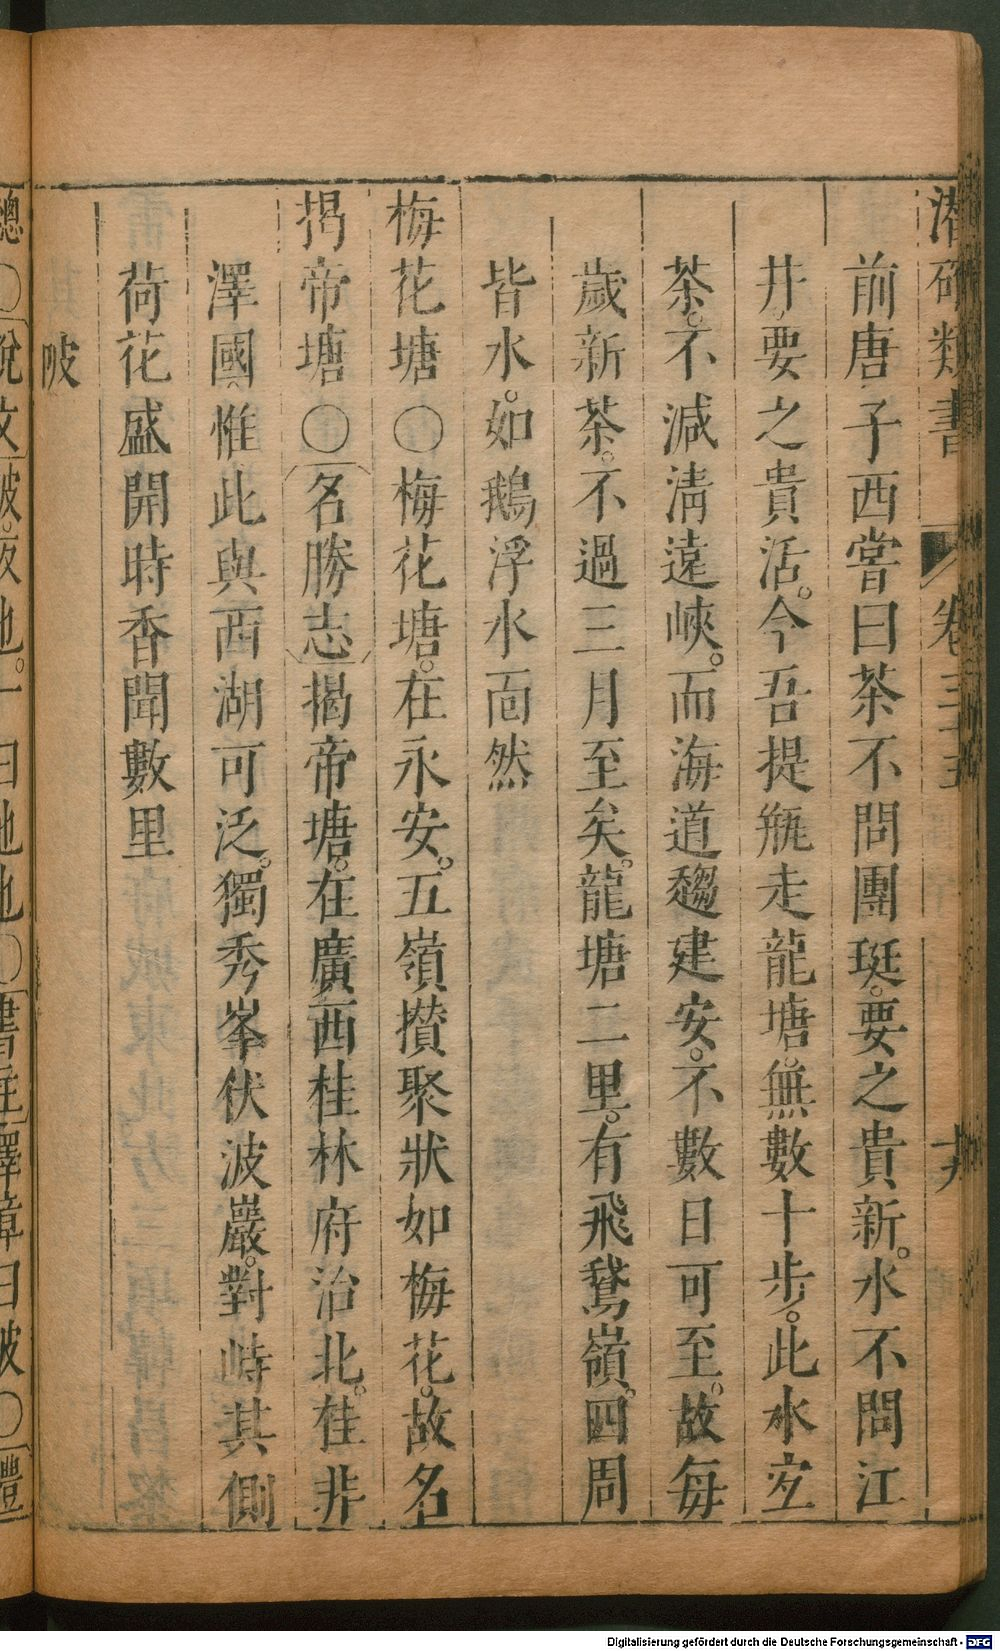 潛確類書 卷三十五 十九
前唐子西嘗曰茶不問團珽。要之貴新。水不問江
井。要之貴活。今吾提瓶走龍塘。無數十步。此水宜
茶。不減清遠峽。而海道趨建安。不數日可至。故每
歲新茶。不過三月至矣。龍塘二里。有飛鵞嶺。四周
皆水。如鵝浮水面然
梅花塘〇梅花塘。在永安。五嶺攅聚狀如梅花。故名
揭帝塘〇名勝志揭帝塘。在廣西桂林府治北。桂非
澤國惟此與西湖可泛。獨秀峯伏波巖。對峙其側
荷花盛開時香聞數里
陂
總〇說文陂。阪也。一曰池也〇書註澤障曰陂〇禮
Digitalisierung gefördert durch die Deutsche Forschungsgemeinschaft - DFG